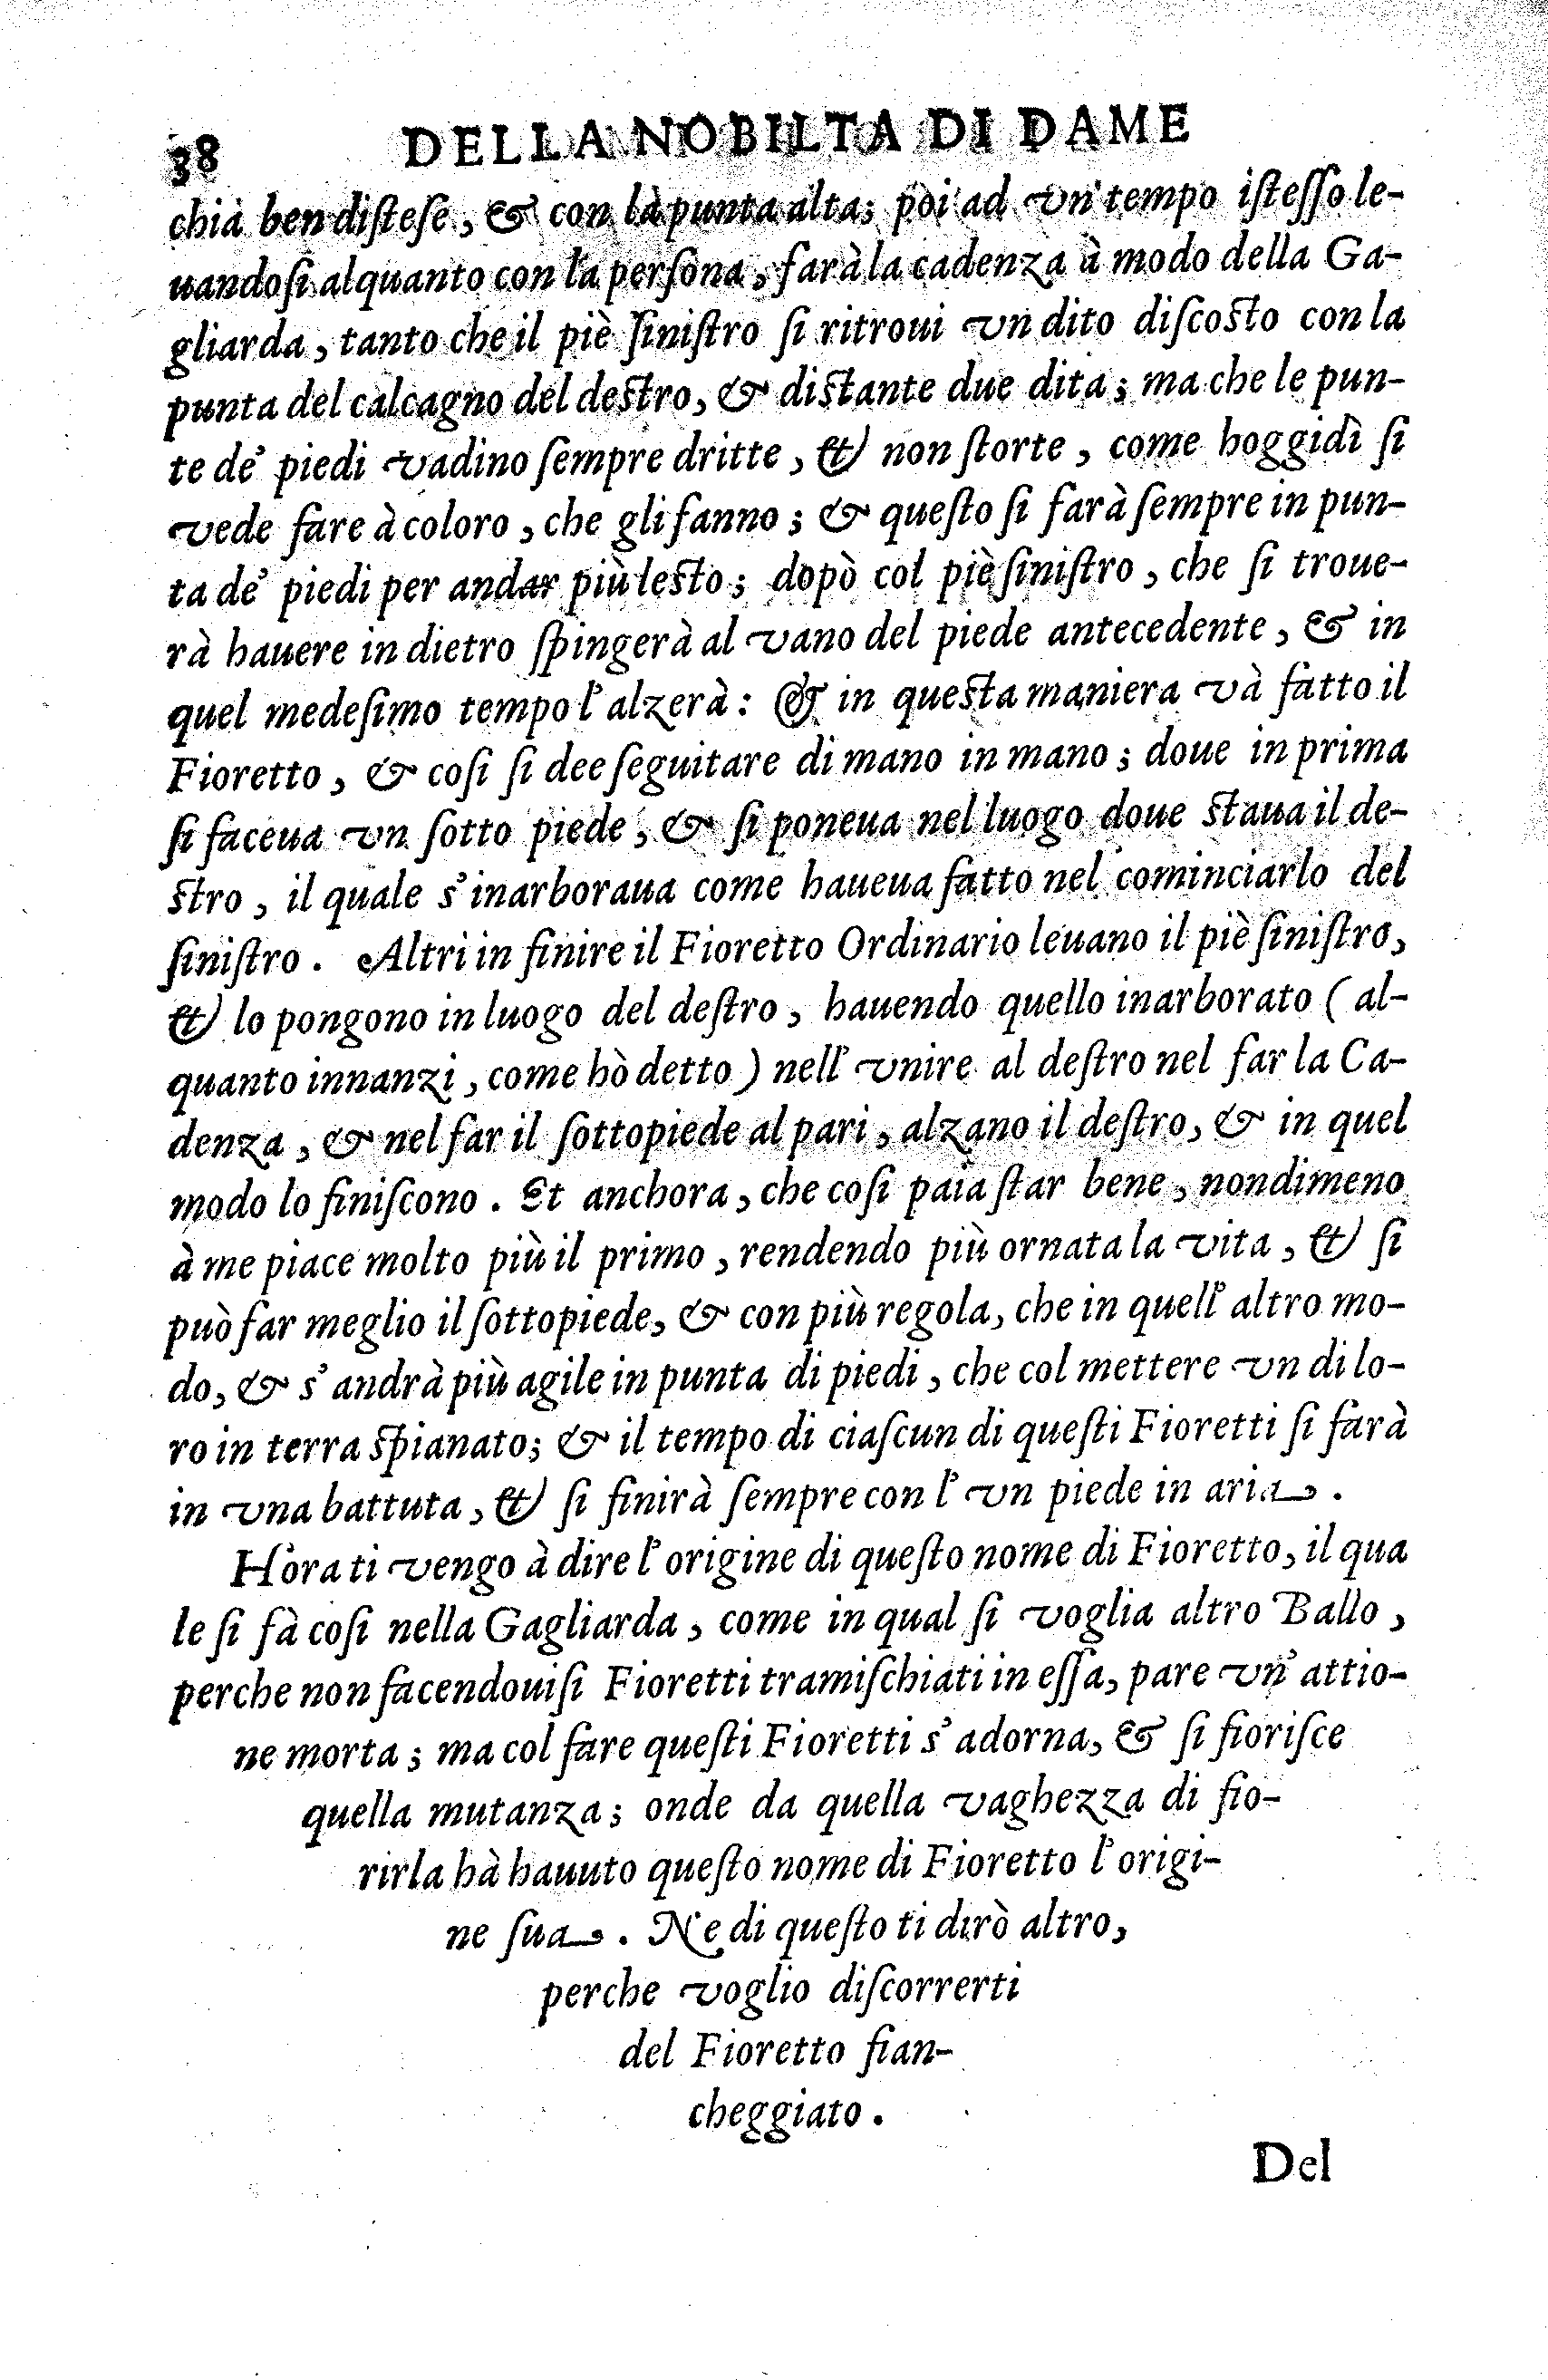 38 DELLA NOBILTA DI DAME
chia ben disteſe, & con la punta alta; poi ad vn' tempo isteſſo le-
uandosi alquanto con la perſona, farà la cadenza à modo della Ga-
gliarda, tanto che il piè ſinistro si ritroui vn dito diſcosto con la
punta del calcagno del destro, & distante due dita; ma che le pun-
te de' piedi vadino ſempre dritte, & non ſtorte, come hoggidì ſi
vede fare à coloro, che gli fanno; & queſto ſi farà ſempre in pun-
ta de' piedi per andar più lesto; dopò col piè ſiniſtro, che ſi troue-
rà hauere in dietro ſpingerà al vano del piede antecedente, & in
quel medeſimo tempo l'alzerà: & in questa maniera và fatto il
Fioretto, & coſi ſi dee ſeguitare di mano in mano; doue in prima
ſi faceua vn ſotto piede, & ſi poneua nel luogo doue staua il de-
stro, il quale s'inarboraua come haueua fatto nel cominciarlo del
ſiniſtro. Altri in finire il Fioretto Ordinario leuano il piè ſiniſtro,
& lo pongono in luogo del deſtro, hauendo quello inarborato (al-
quanto innanzi, come hò detto) nell'vnire al deſtro nel far la Ca-
denza, & nel far il ſottopiede al pari, alzano il deſtro, & in quel
modo lo finiſcono. Et anchora, che coſi paia ſtar bene, nondimeno
à me piace molto più il primo, rendendo più ornata la vita, & ſi
può far meglio il ſottopiede, & con più regola, che in quell'altro mo-
do, & s'andrà più agile in punta di piedi, che col mettere vn di lo-
ro in terra spianato; & il tempo di ciaſcun di queſti Fioretti ſi farà
in vna battuta, & ſi finirà ſempre con l'vn piede in aria.
Hora ti vengo à dire l'origine di queſto nome di Fioretto, il qua
le ſi fà coſi nella Gagliarda, come in qual ſi voglia altro Ballo,
perche non facendouiſi Fioretti tramiſchiati in eſſa, pare vn'attio-
ne morta; ma col fare queſti Fioretti s'adorna, & ſi fioriſce
quella mutanza; onde da quella vaghezza di fio-
rirla hà hauuto queſto nome di Fioretto l'origi-
ne ſua. Ne di queſto ti dirò altro,
perche voglio diſcorrerti
del Fioretto fian-
cheggiato.
Del